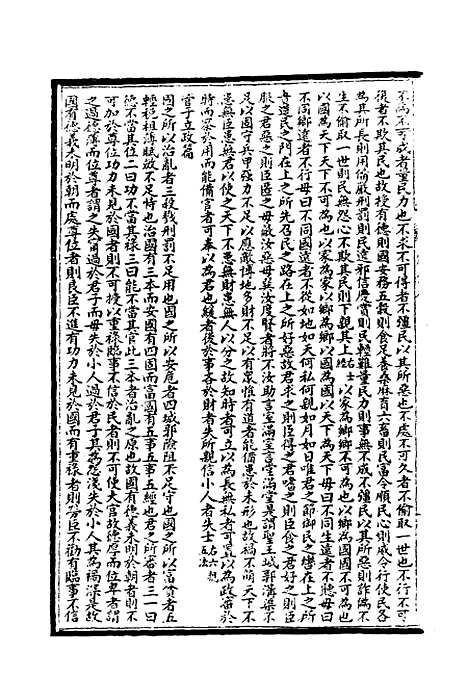 不為不可成者量民力也不求不可得者不彊民以其所惡也不處不可久者不偷取一世也不行不可
復者不欺其民也故授有德則國安務五穀則食足養桑麻育六畜則民富令順民心則威令行使民各
為其所長則用備嚴刑罰則民遠邪信慶賞則民輕難量民力則事無不成不彊民以其所惡則詐偽不
生不偷取一世則民無怨心不欺其民則下親其上右士經以家為鄉鄉不可為也以鄉為國國不可為也
以國為天下天下不可為也以家為家以鄉為鄉以國為國以天下為天下毋曰不同生遠者不聽毋曰
不同鄉遠者不行毋曰不同國遠者不從如地如天何私何親如月如日唯君之節御民之轡在上之所
貴道民之門在上之所先召民之路在上之所好惡故君求之則臣得之君嗜之則臣食之君好之則臣
服之君惡之則臣匿之毋蔽汝惡毋異汝度賢者將不汝助言室滿室言堂滿堂是謂聖王城郭溝渠不
足以固守兵甲彊力不足以應敵博地多財不足以有眾惟有道者能備患於未形也故禍不萌天下不
患無臣患無君以使之天下不患無財患無人以分之故知時者可立以為長無私者可置以為政審於
時而察於用而能備官者可奉以為君也緩者後於事吝於財者失所親信小人者失士右六親五法
管子立政篇
國之所以治亂者三殺戮刑罰不足用也國之所以安危者四城郭險阻不足守也國之所以富貧者五
輕稅租薄賦斂不足恃也治國有三本而安國有四固而富國有五事五事五經也君之所審者三一曰
德不當其位二曰功不當其祿三曰能不當其官此三本者治亂之原也故國有德義未明於朝者則不
可加於尊位功力未見於國者則不可授以重祿臨事不信於民者則不可使任大官故德厚而位卑者謂
之過德薄而位尊者謂之失寧過於君子而毋失於小人過於君子其為怨淺失於小人其為禍深是故
國有德義未明於朝而處尊位者則良臣不進有功力未見於國而有重祿者則勞臣不勸有臨事不信